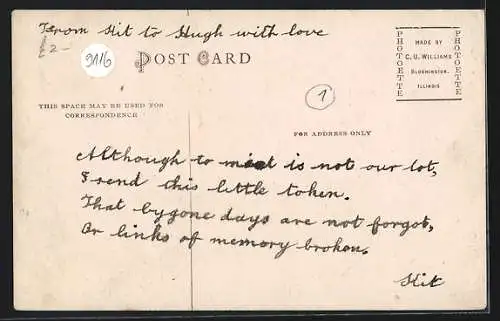 From Kit to Hugh with love
£2-
9116
POST CARD
PHOTOETTE
MADE BY
C. U. WILLIAMS
BLOOMINGTON,
ILLINOIS
PHOTOETTE
1
THIS SPACE MAY BE USED FOR
CORRESPONDENCE
FOR ADDRESS ONLY
Although to meet is not our lot,
I send this little token.
That bygone days are not forgot,
Or links of memory broken.
Kit